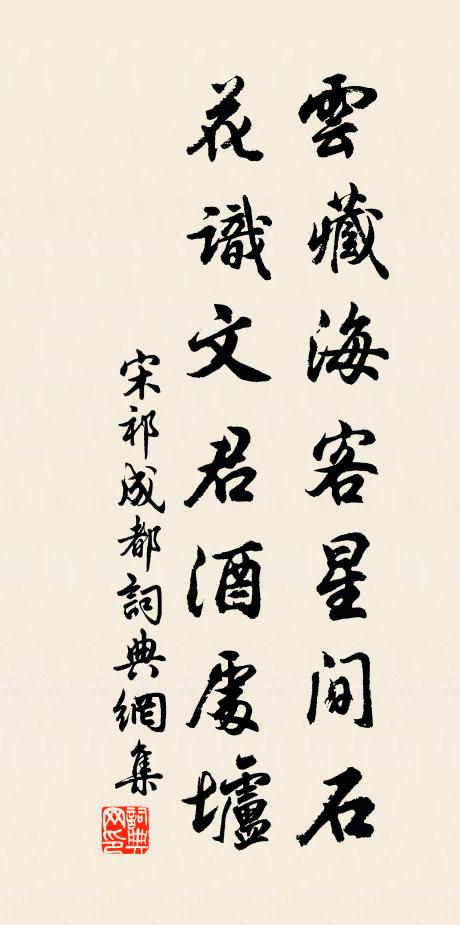 雲藏海客星間石
花識文君酒處壚
宋祁成都詞典網集
詞典網印